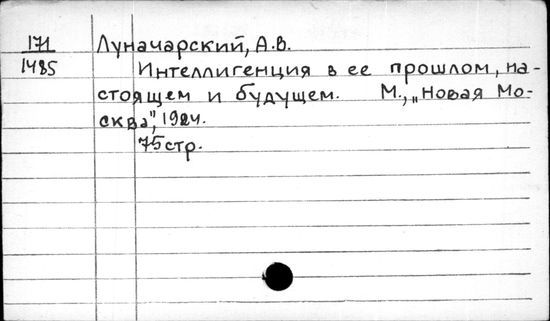 171 Луначарский, А.В.
1485 Интеллигенция в ее прошлом, на-
стоящем и будущем. М., „Новая Мо-
сква", 1924.
75 стр.